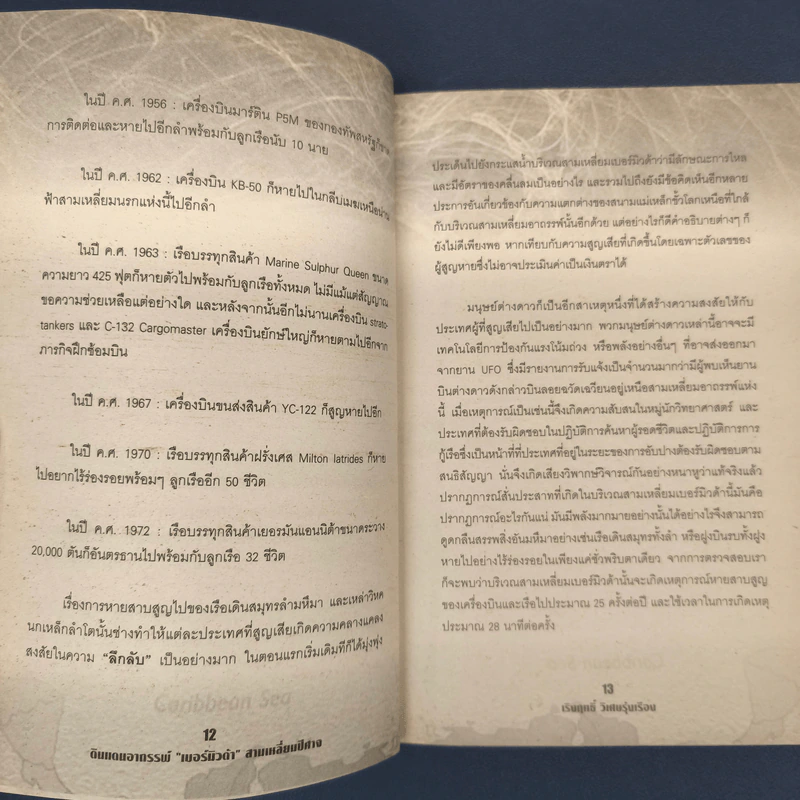 ในปี ค.ศ. 1956 : เครื่องบินมาร์ติน P5M ของกองทัพสหรัฐก็ขาด
การติดต่อและหายไปอีกลำพร้อมกับลูกเรือนับ 10 นาย
ในปี ค.ศ. 1962 : เครื่องบิน KB-50 ก็หายไปในกลีบเมฆเหนือน่าน
ฟ้าสามเหลี่ยมนรกแห่งนี้ไปอีกลำ
ในปี ค.ศ. 1963 : เรือบรรทุกสินค้า Marine Sulphur Queen ขนาด
ความยาว 425 ฟุตก็หายตัวไปพร้อมกับลูกเรือทั้งหมด ไม่มีแม้แต่สัญญาณ
ขอความช่วยเหลือแต่อย่างใด และหลังจากนั้นอีกไม่นานเครื่องบิน strato-
tankers และ C-132 Cargomaster เครื่องบินยักษ์ใหญ่ก็หายตามไปอีกจาก
ภารกิจฝึกซ้อมบิน
ในปี ค.ศ. 1967 : เครื่องบินขนส่งสินค้า YC-122 ก็สูญหายไปอีก
ในปี ค.ศ. 1970 : เรือบรรทุกสินค้าฝรั่งเศส Milton Iatrides ก็หาย
ไปอยากไร้ร่องรอยพร้อมๆ ลูกเรืออีก 50 ชีวิต
ในปี ค.ศ. 1972 : เรือบรรทุกสินค้าเยอรมันแอนนิต้าขนาดระวาง
20,000 ตันก็อันตรธานไปพร้อมกับลูกเรือ 32 ชีวิต
เรื่องการหายสาบสูญไปของเรือเดินสมุทรลำมหึมา และเหล่าวิหค
นกเหล็กลำโตนั้นช่างทำให้แต่ละประเทศที่สูญเสียเกิดความคลางแคลง
สงสัยในความ “ลึกลับ” เป็นอย่างมาก ในตอนแรกเริ่มเดิมทีก็ได้มุ่งพุ่ง
Caribbean Sea
12
ดินแดนอาถรรพ์ “เบอร์มิวด้า” สามเหลี่ยมปีศาจ
ประเด็นไปยังกระแสน้ำบริเวณสามเหลี่ยมเบอร์มิวด้าว่ามีลักษณะการไหล
และมีอัตราของคลื่นลมเป็นอย่างไร และรวมไปถึงยังมีข้อคิดเห็นอีกหลาย
ประการอันเกี่ยวข้องกับความแตกต่างของสนามแม่เหล็กขั้วโลกเหนือที่ใกล้
กับบริเวณสามเหลี่ยมอาถรรพ์นั้นอีกด้วย แต่อย่างไรก็ดีคำอธิบายต่างๆ ก็
ยังไม่ดีเพียงพอ หากเทียบกับความสูญเสียที่เกิดขึ้นโดยเฉพาะตัวเลขของ
ผู้สูญหายซึ่งไม่อาจประเมินค่าเป็นเงินตราได้
มนุษย์ต่างดาวก็เป็นอีกสาเหตุหนึ่งที่ได้สร้างความสงสัยให้กับ
ประเทศผู้ที่สูญเสียไปเป็นอย่างมาก พวกมนุษย์ต่างดาวเหล่านี้อาจจะมี
เทคโนโลยีการป้องกันแรงโน้มถ่วง หรือพลังอย่างอื่นๆ ที่อาจส่งออกมา
จากยาน UFO ซึ่งมีรายงานการรับแจ้งเป็นจำนวนมากว่ามีผู้พบเห็นยาน
บินต่างดาวดังกล่าวบินลอยฉวัดเฉวียนอยู่เหนือสามเหลี่ยมอาถรรพ์แห่ง
นี้ เมื่อเหตุการณ์เป็นเช่นนี้จึงเกิดความสับสนในหมู่นักวิทยาศาสตร์ และ
ประเทศที่ต้องรับผิดชอบในปฏิบัติการค้นหาผู้รอดชีวิตและปฏิบัติการการ
กู้เรือซึ่งเป็นหน้าที่ที่ประเทศที่อยู่ในระยะของการอับปางต้องรับผิดชอบตาม
สนธิสัญญา นั่นจึงเกิดเสียงวิพากษ์วิจารณ์กันอย่างหนาหูว่าแท้จริงแล้ว
ปรากฏการณ์สั่นประสาทที่เกิดในบริเวณสามเหลี่ยมเบอร์มิวด้านี้มันคือ
ปรากฏการณ์อะไรกันแน่ มันมีพลังมากมายอย่างนั้นได้อย่างไรจึงสามารถ
ดูดกลืนสรรพสิ่งอันมหึมาอย่างเช่นเรือเดินสมุทรทั้งลำ หรือฝูงบินรบทั้งฝูง
หายไปอย่างไร้ร่องรอยในเพียงแค่ชั่วพริบตาเดียว จากการตรวจสอบเรา
ก็จะพบว่าบริเวณสามเหลี่ยมเบอร์มิวด้านั้นจะเกิดเหตุการณ์หายสาบสูญ
ของเครื่องบินและเรือไปประมาณ 25 ครั้งต่อปี และใช้เวลาในการเกิดเหตุ
ประมาณ 28 นาทีต่อครั้ง
13
เริงฤทธิ์ วิเศษรุ่งเรือง